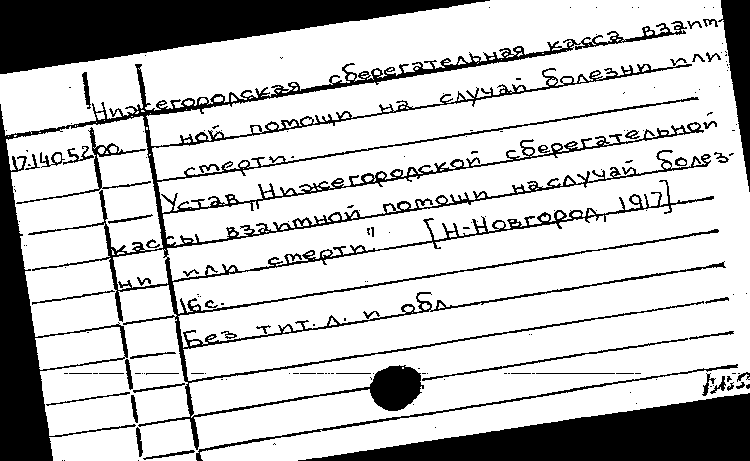 Нижегородская сберегательная касса взаим-
ной помощи на случай болезни или
17.140.5.200. смерти.
Устав „Нижегородской сберегательной
кассы взаимной помощи на случай болез-
ни или смерти." [Н-Новгород, 1917].
16 с.
Без тит. л. и обл.